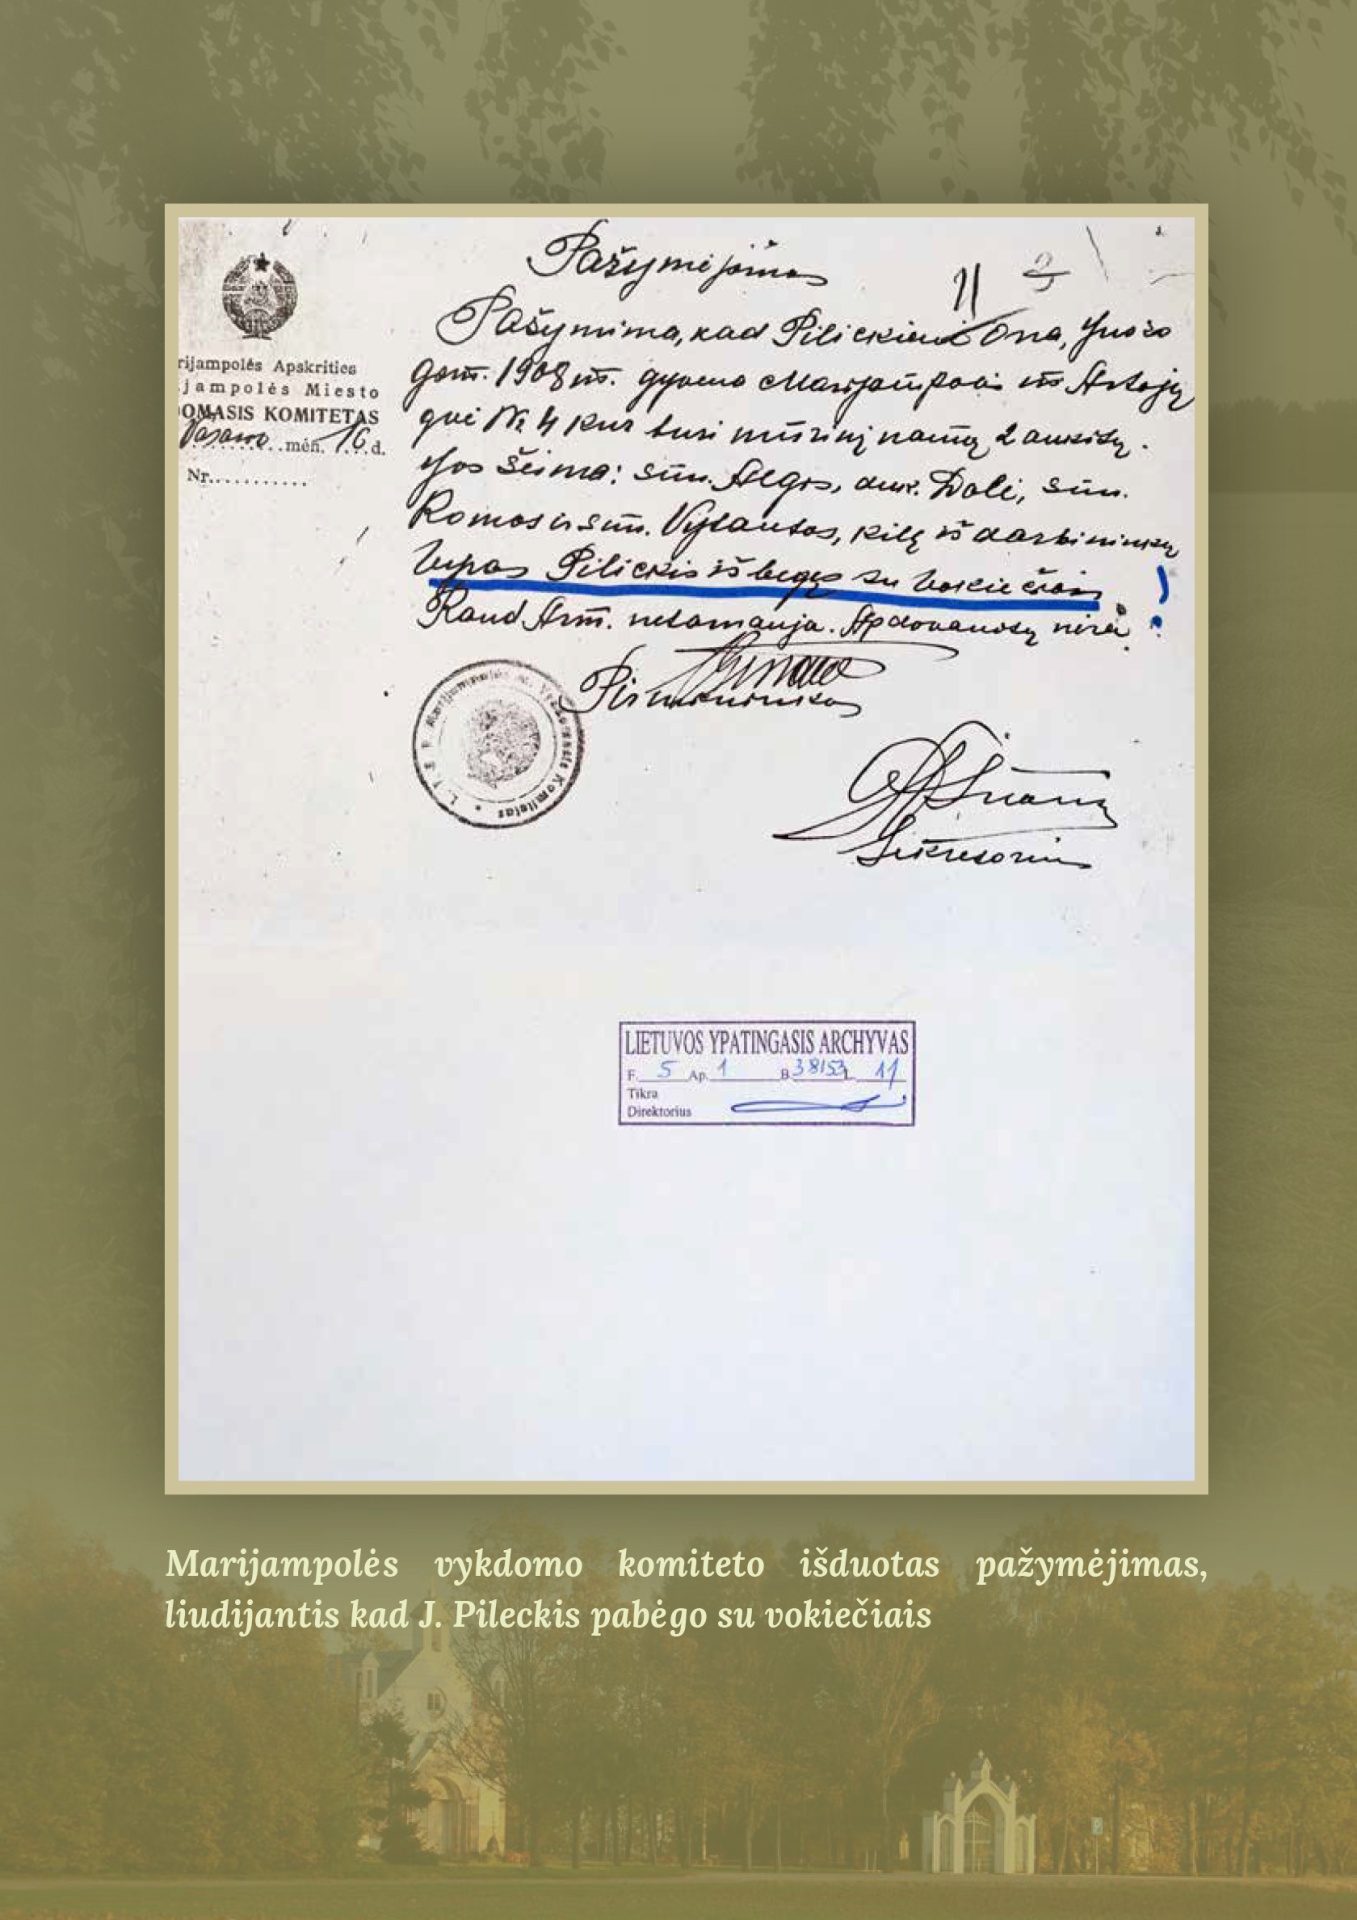 Pažymėjimas
11
Pažymima, kad Pilickienė Ona, Juozo
gom. 1908 m. gyvena Marijampolės m. Artojų
gvė № 4 kur turi mūrinį namą 2 aukštų.
Jos šeima: sūn. Algis, duk. Dalė, sūn.
Romas ir sūn. Vytautas, kilę iš darbininkų
Vyras Pilickis išbegęs su vokiečiais !
Raud Arm. netarnauja. Apdovanotų nėra
Pirmininkas
Sekretorius
rijampolės Apskrities
jampolės Miesto
DOMASIS KOMITETAS
Vasario mėn. 10 d.
Nr.
L. T. S. R. Marijampolės m. Vykdomasis Komitetas
LIETUVOS YPATINGASIS ARCHYVAS
F. 5 Ap. 1 B. 38153 L. 11
Tikra
Direktorius
Marijampolės vykdomo komiteto išduotas pažymėjimas,
liudijantis kad J. Pileckis pabėgo su vokiečiais